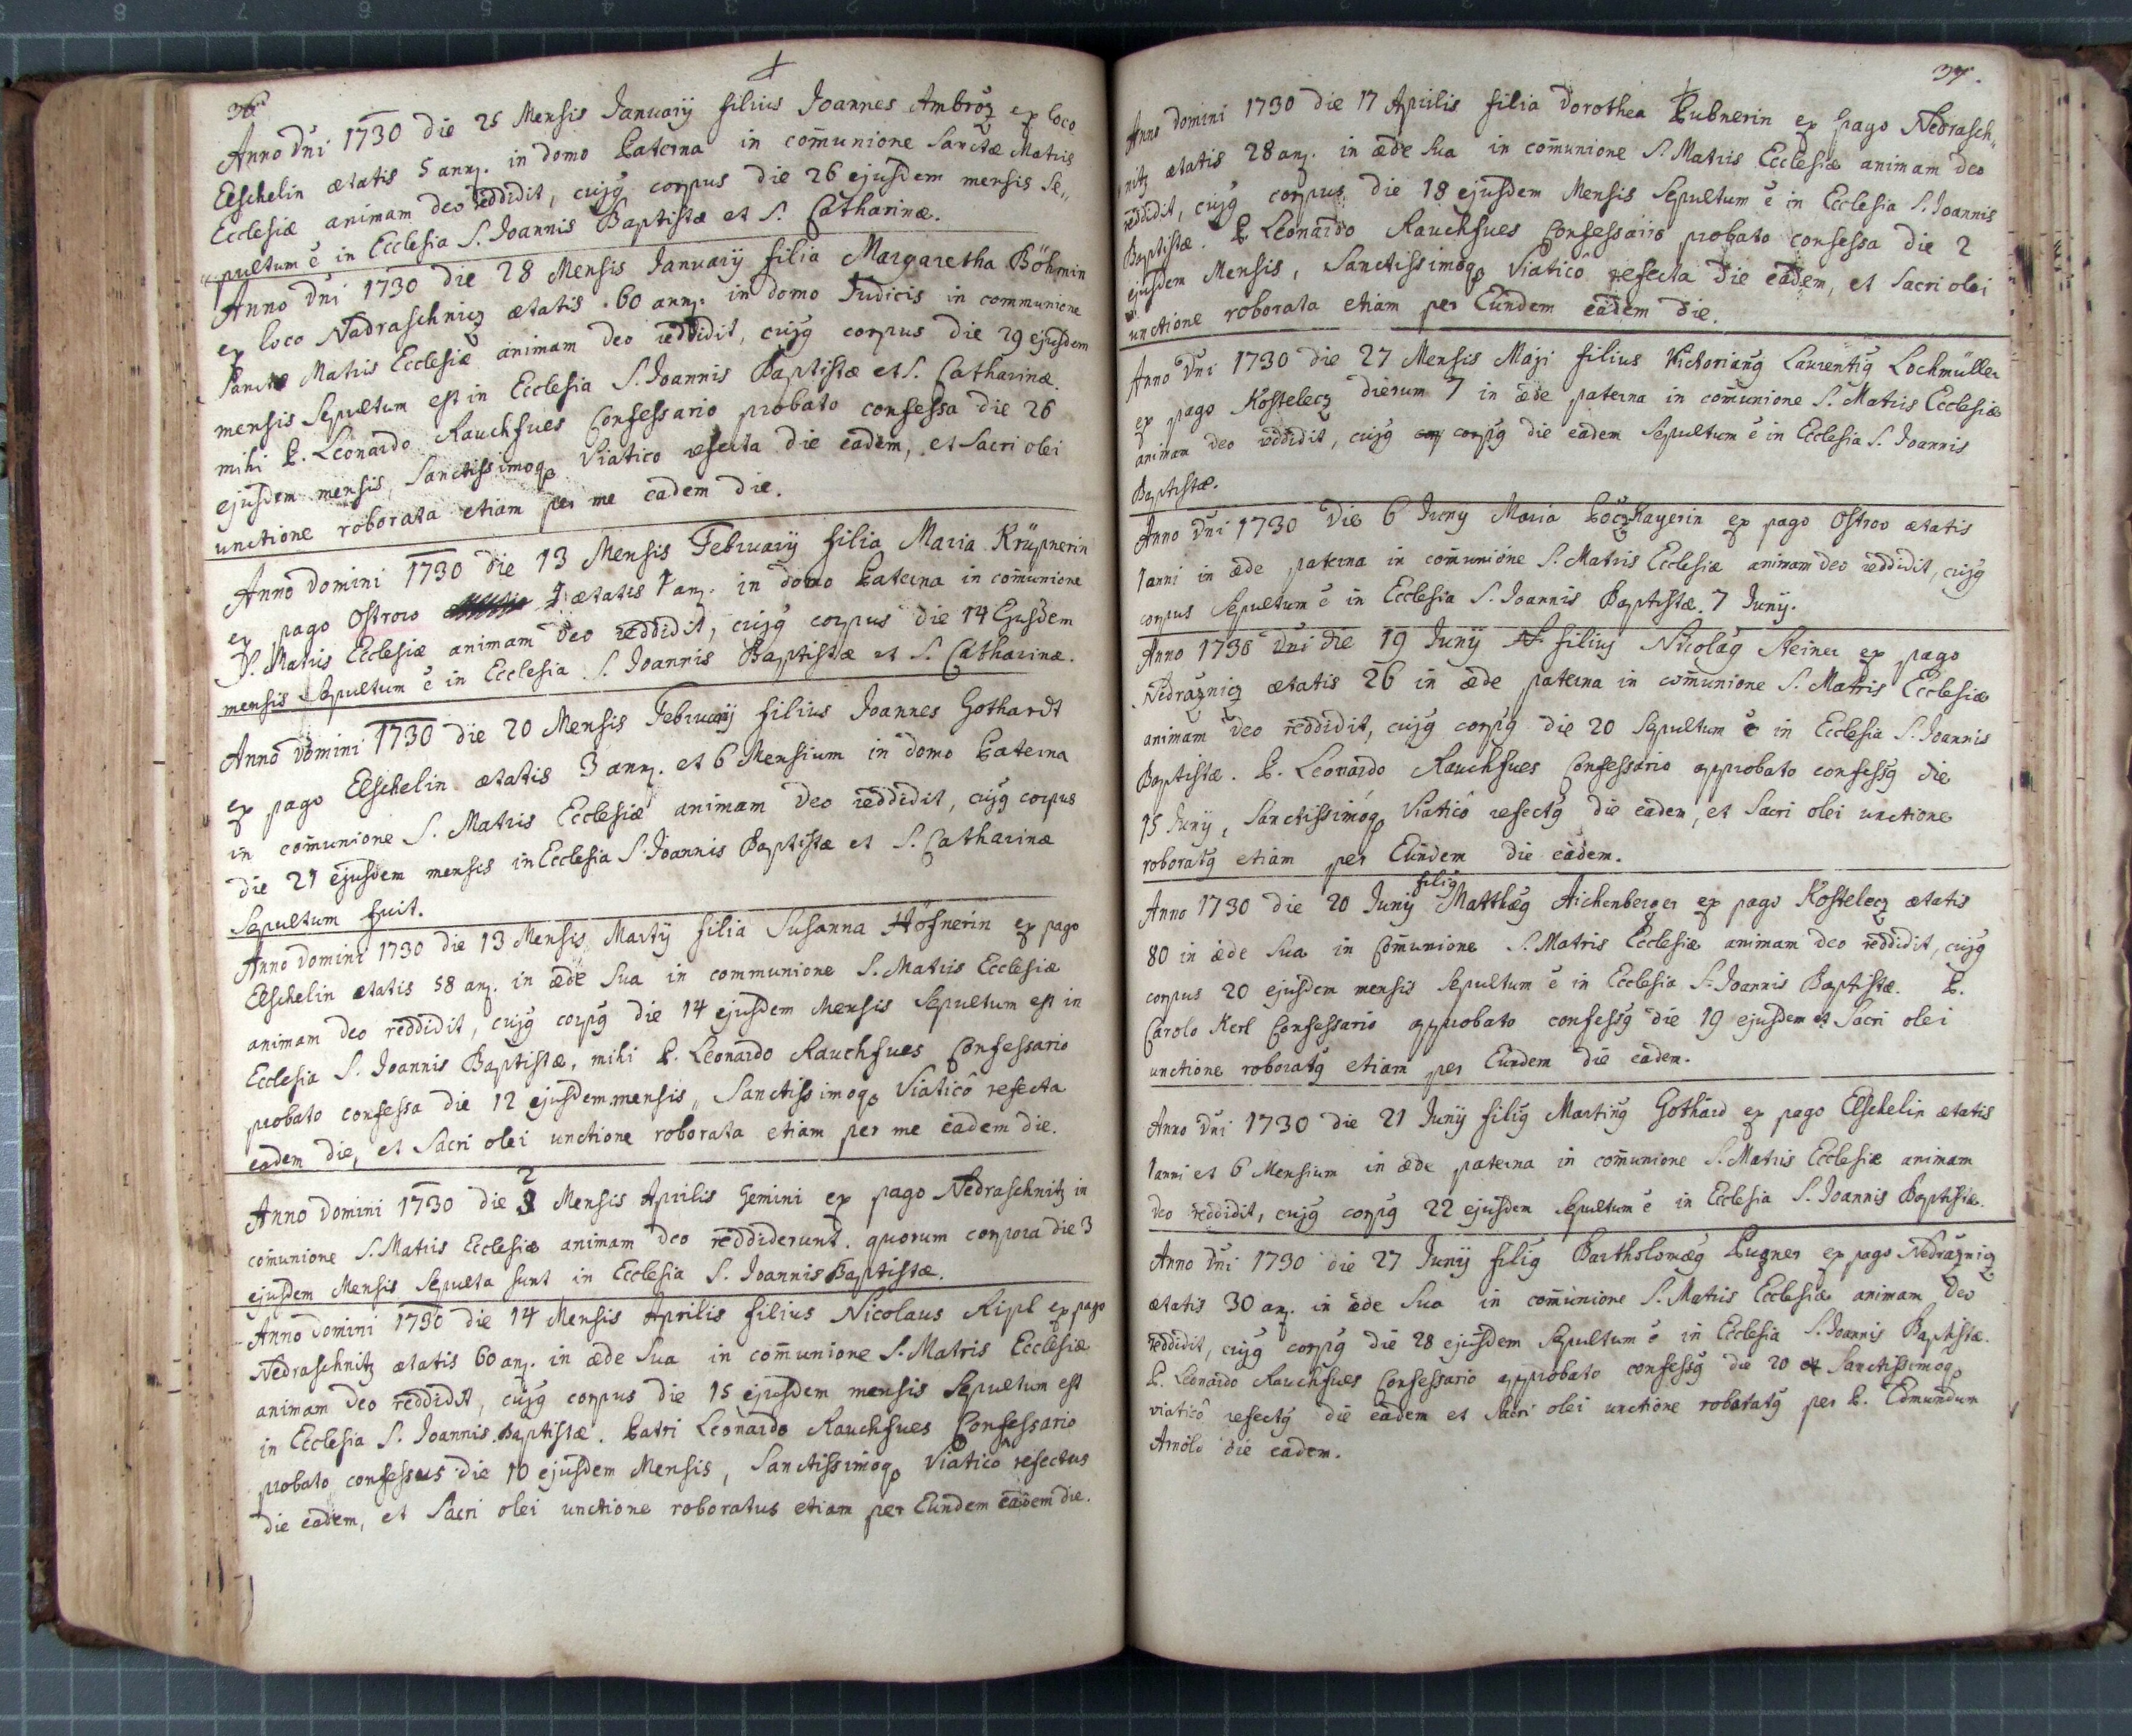 36
Anno Dni 1730 die 25 Mensis Januarij filius Joannes Ambroz ex loco
Elschelin ætatis 5 ann. in domo Paterna in comunione Sanctæ Matris
Ecclesiæ animam deo reddidit, cujg corpus die 26 ejusdem mensis Se„
„pultum ē in Ecclesia S. Joannis Baptistæ et S. Catharinæ.
Anno Dni 1730 die 28 Mensis Januarij filia Margaretha Böhmin
ex loco Nadraschnicz ætatis 60 ann. in domo Judicis in communione
Sanctæ Matris Ecclesiæ animam deo reddidit, cujg corpus die 29 ejusdem
mensis Sepultum est in Ecclesia S. Joannis Baptistæ et S. Catharinæ.
mihi P. Leonardo Rauchfues Confessario probato confessa die 26
ejusdem mensis, Sanctissimoq. Viatico refecta die eadem, et Sacri olei
unctione roborata etiam per me eadem die.
Anno Domini 1730 die 13 Mensis Februarij filia Maria Krüpnerin
ex pago Ostrow ætatis 1 an. in domo Paterna in comunione
S. Matris Ecclesiæ animam Deo reddidit, cujg corpus die 14 Ejusdem
mensis Sepultum ē in Ecclesia S. Joannis Baptistæ et S. Catharinæ.
Anno Domini 1730 die 20 Mensis Februarij filius Joannes Gothardt
ex pago Elschelin ætatis 3 ann. et 6 Mensium in domo Paterna
in comunione S. Matris Ecclesiæ animam Deo reddidit, cujg corpus
die 21 ejusdem mensis in Ecclesia S. Joannis Baptistæ et S. Catharinæ
Sepultum fuit.
Anno Domini 1730 die 13 Mensis Martij filia Susanna Höfnerin ex pago
Elschelin ætatis 58 an. in æde sua in communione S. Matris Ecclesiæ
animam deo reddidit, cujg corpg die 14 ejusdem Mensis Sepultum est in
Ecclesia S. Joannis Baptistæ, mihi P. Leonardo Rauchfues Confessario
probato confessa die 12 ejusdem mensis, Sanctissimoq. Viaticô refecta
eadem die, et Sacri olei unctione roborata etiam per me eadem die.
Anno Domini 1730 die 2 Mensis Aprilis Gemini ex pago Nedraschnitz in
comunione S. Matris Ecclesiæ animam Deo reddiderunt. quorum corpora die 3
ejusdem Mensis Sepulta sunt in Ecclesia S. Joannis Baptistæ.
Anno Domini 1730 die 14 Mensis Aprilis filius Nicolaus Ripl ex pago
Nedraschnitz ætatis 60 an. in æde sua in comunione S. Matris Ecclesiæ
animam Deo reddidit, cujg corpus die 15 ejusdem mensis Sepultum est
in Ecclesia S. Joannis Baptistæ. Patri Leonardo Rauchfues Confessario
probato confessus die 10 ejusdem Mensis, Sanctissimoq. Viaticô refectus
die eadem, et Sacri olei unctione roboratus etiam per Eundem eadem die.
37.
Anno Domini 1730 die 17 Aprilis filia Dorothea Pubnerin ex pago Nedrasch„
nitz ætatis 28 an. in æde sua in comunione S. Matris Ecclesiæ animam deo
reddidit, cujg corpus die 18 ejusdem Mensis Sepultum ē in Ecclesia S. Joannis
Baptistæ. P. Leonardo Rauchfues Confessario probato confessa die 2
ejusdem Mensis, Sanctissimoq. Viaticô refecta die eadem, et Sacri olei
unctione roborata etiam per Eundem eadem die.
Anno Dni 1730 die 27 Mensis Maji filius Victoriang Laurentig Lochmüller
ex pago Kostelecz dierum 7 in æde paterna in comunione S. Matris Ecclesiæ
animam deo reddidit, cujg corpg die eadem Sepultum ē in Ecclesia S. Joannis
Baptistæ.
Anno Dni 1730 die 6 Juny Maria Poczkayerin ex pago Ostrov ætatis
1 anni in æde paterna in comunione S. Matris Ecclesiæ animam deo reddidit, cujg
corpus Sepultum ē in Ecclesia S. Joannis Baptistæ 7 Junij.
Anno 1730 Dni die 19 Junij filiug Nicolag Steiner ex pago
Nedraznicz ætatis 26 in æde paterna in comunione S. Matris Ecclesiæ
animam deo reddidit, cujg corpg die 20 Sepultum ē in Ecclesia S. Joannis
Baptistæ. P. Leonardo Rauchfues Confessario approbato confessg die
15 Junij, Sanctissimoq. Viaticô refectg die eadem, et Sacri olei unctione
roboratg etiam per Eundem die eadem.
Anno 1730 die 20 Junij filig Matthæg Aichenberger ex pago Kostelecz ætatis
80 in æde sua in Comunione S. Matris Ecclesiæ animam deo reddidit, cujg
corpus 20 ejusdem mensis Sepultum ē in Ecclesia S. Joannis Baptistæ. P.
Carolo Kerl Confessario approbato confessg die 19 ejusdem et Sacri olei
unctione roboratg etiam per Eundem die eadem.
Anno Dni 1730 die 21 Junij filig Marting Gothard ex pago Elschelin ætatis
1 anni et 6 Mensium in æde paterna in comunione S. Matris Ecclesiæ animam
deo reddidit, cujg corpg 22 ejusdem Sepultum ē in Ecclesia S. Joannis Baptistæ.
Anno Dni 1730 die 27 Junij filig Bartholomæg Puzner ex pago Nedraznicz
ætatis 30 an. in æde sua in comunione S. Matris Ecclesiæ animam Deo
reddidit, cujg corpg die 28 ejusdem Sepultum ē in Ecclesia S. Joannis Baptistæ.
P. Leonardo Rauchfues Confessario approbato confessg die 20 et Sanctissimoq.
viaticô refectg die eadem et Sacri olei unctione roboratg per P. Edmundum
Arnold die eadem.